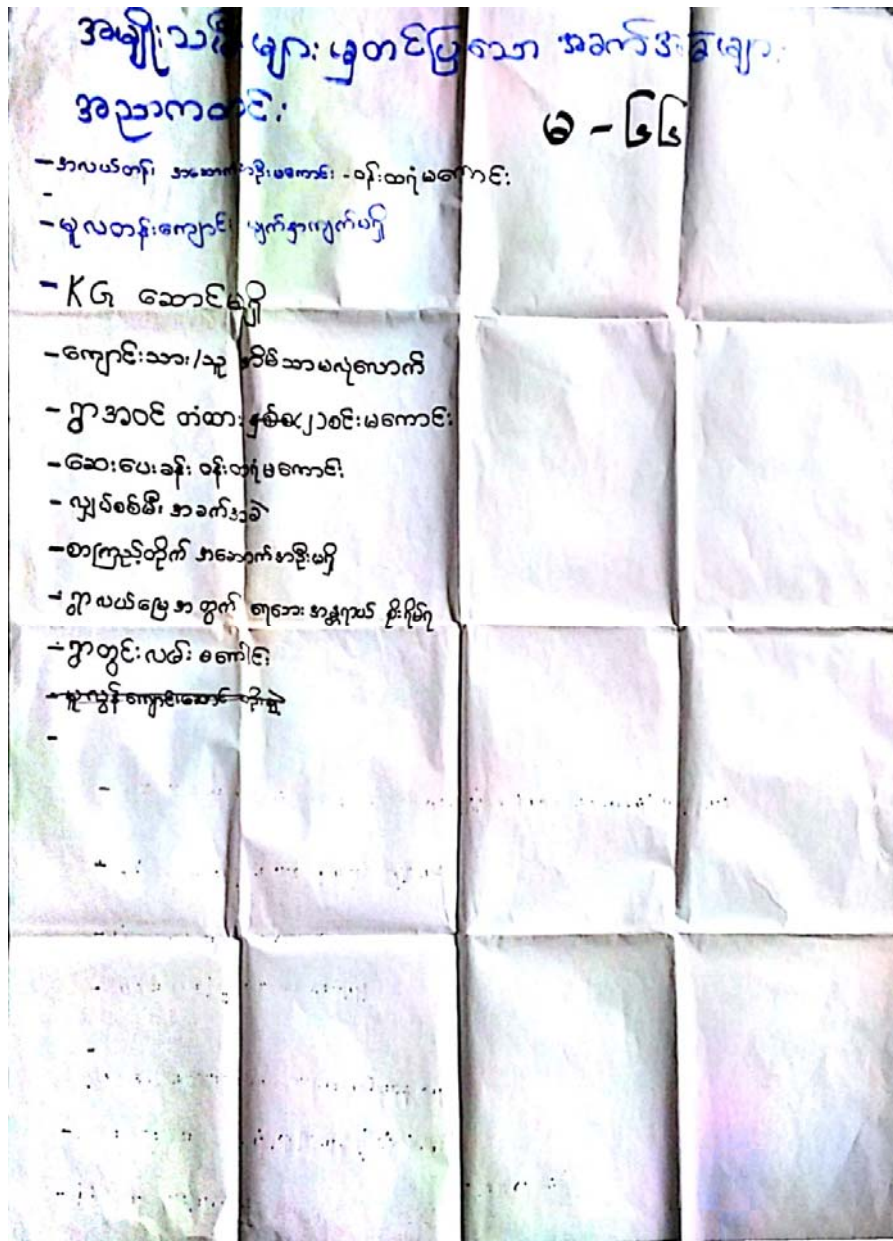 အမျိုးသမီးများ မှတင်ပြသော အခက်အခဲများ
အညာကတင်း
မ - ၆၆
- အလယ်တန်း အဆောက်အဦးမကောင်း - ဝန်းထရံမကောင်း
-
- မူလတန်းကျောင်း မျက်နှာကျက်မရှိ
- KG ဆောင်မရှိ
- ကျောင်းသား/သူ အိမ်သာမလုံလောက်
- ရွာအဝင် တံထား နှစ်စ(၂)စင်းမကောင်း
- ဆေးပေးခန်း ဝန်းထရံမကောင်း
- လျှပ်စစ်မီး အခက်အခဲ
- စာကြည့်တိုက် အဆောက်အဦးမရှိ
- ရွာလယ်မြေအတွက် ရေဘေး အန္တရာယ် စိုးရိမ်ရ
- ရွာတွင်းလမ်း မကောင်း
-